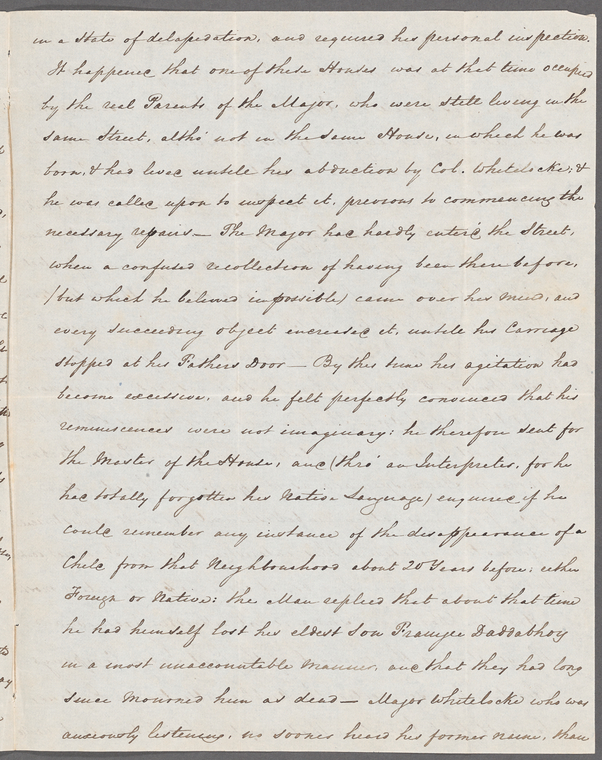 in a state of delapedation, and required his personal inspection.
It happened that one of these Houses was at that time occupied
by the real Parents of the Major, who were still living in the
same Street, altho' not in the same House, in which he was
born, & had lived untile his abduction by Col. Whitelocke; &
he was called upon to inspect it, previous to commencing the
necessary repairs — The Major had hardly enter'd the Street,
when a confused recollection of having been there before,
(but which he believed impossible) came over his Mind, and
every succeeding object encreased it, untile his Carriage
stopped at his Fathers Door — By this time his agitation had
become excessive, and he felt perfectly convinced that his
reminiscences were not imaginary; he therefore sent for
the Master of the House, and (thro' an Interpreter, for he
had totally forgotten his Native Language) enquired if he
could remember any instance of the desappearance of a
Child from that Neighbourhood about 20 Years before; either
Foreign or Native: the Man replied that about that time
he had himself lost his eldest Son Framjee Daddabhoy
in a most unaccountable Manner, and that they had long
since Mourned him as dead — Major Whitelocke who was
anxiously listening, no sooner heard his former name, than